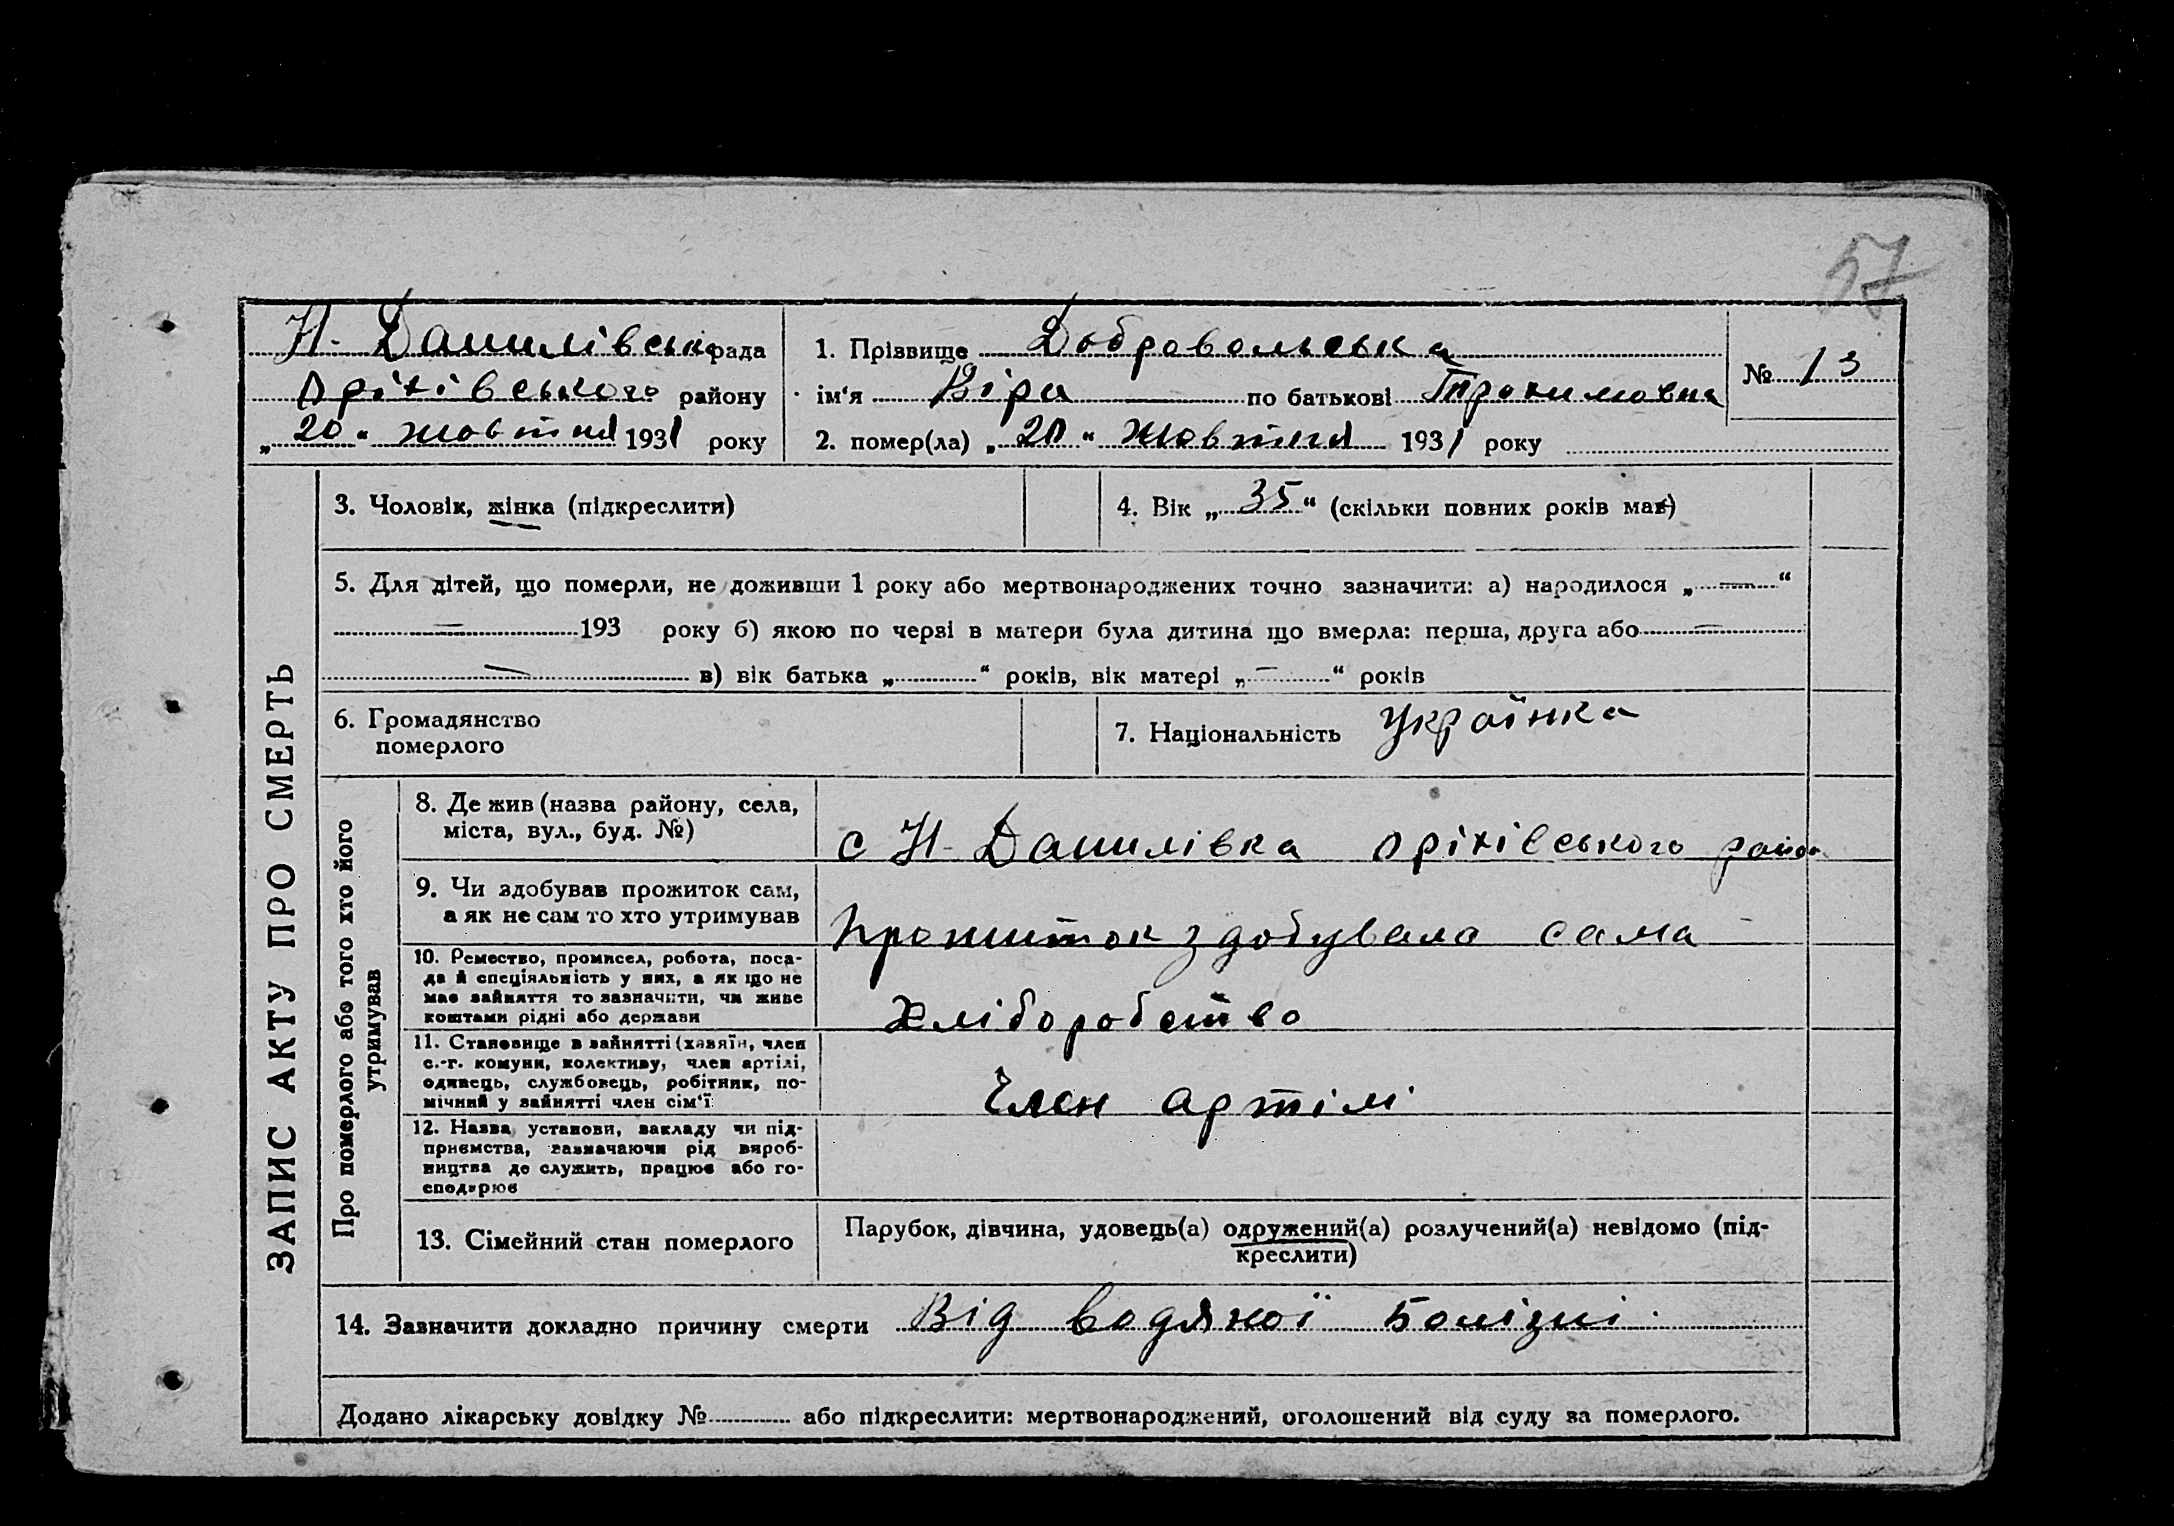 57
Н. Данилівськ рада
Оріхівського району
„20“ жовтня 1931 року
1. Прізвище Добровольська
ім‘я Віра по батькові Трохимовна
2. помер(ла) „20“ жовтня 1931 року
№ 13
ЗАПИС АКТУ ПРО СМЕРТЬ
3. Чоловік, жінка (підкреслити)
4. Вік „35“ (скільки повних років мав)
5. Для дітей, що померли, не доживши 1 року або мертвонароджених точно зазначити: а) народилося „—“
— 193 року б) якою по черві в матери була дитина що вмерла: перша, друга або —
— в) вік батька „ “ років, вік матері „—“ років
6. Громадянство
померлого
7. Національність Українка
Про померлого або того хто його
утримував
8. Де жив (назва району, села,
міста, вул., буд. №)
с Н-Данилівка Оріхівського район
9. Чи здобував прожиток сам,
а як не сам то хто утримував
Прожиток здобувала сама
10. Ремество, промисел, робота, поса-
да й спеціяльність у них, а як що не
має зайняття то зазначити, чи живе
коштами рідні або держави
Хліборобство
11. Становище в зайнятті (хазяїн, член
с.-г. комуни, колективу, член артілі,
одинець, службовець, робітник, по-
мічний у зайнятті член сім‘ї
Член артілі
12. Назва установи, закладу чи під-
приємства, зазначаючи рід вироб-
ництва де служить, працює або го-
сподарює
13. Сімейний стан померлого
Парубок, дівчина, удовець(а) одружений(а) розлучений(а) невідомо (під-
креслити)
14. Зазначити докладно причину смерти Від водяної болізні.
Додано лікарську довідку № або підкреслити: мертвонароджений, оголошений від суду за померлого.